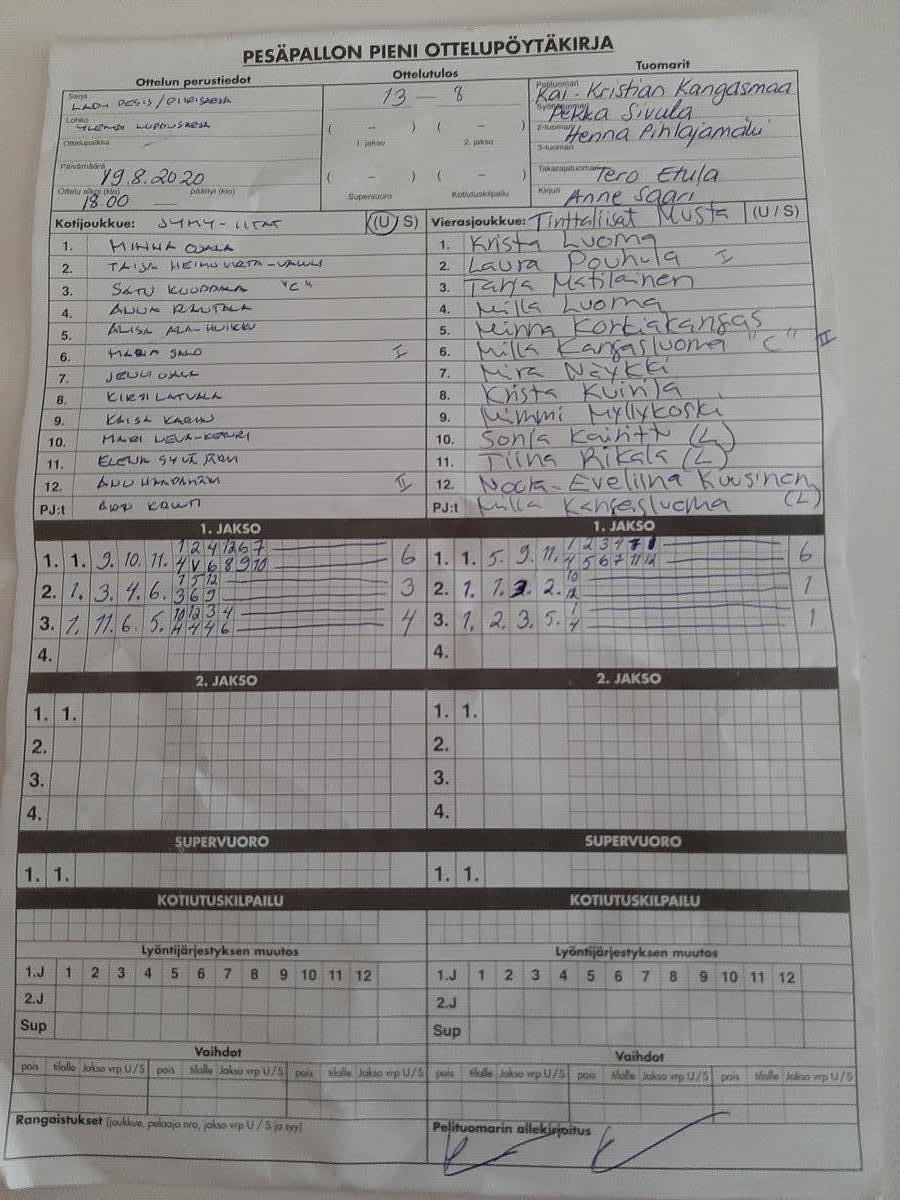 PESÄPALLON PIENI OTTELUPÖYTÄKIRJA
Ottelun perustiedot Ottelutulos Tuomarit
Sarja
LADY PESIS/
Lohko
Ottelupaikka
Päivämäärä 19.8.2020
Ottelu alkoi (klo) päättyi (klo)
18.00
13 - 8
( - ) ( - )
1. jakso 2. jakso
( - ) ( - )
Supervuoro Kotiutuskilpailu
Pelituomari Kai-Kristian Kangasmaa
Pekka Sivula
2-tuomari Henna Pihlajamäki
3-tuomari
Takarajatuomari Tero Etula
Kirjuri Anne Saari
Kotijoukkue: (U/S)
1. MINNA OJALA
2. TAIJA
3. SATU "C"
4. ANNA RANTALA
5. ALISA ALA-
6. MARIA SALO I
7. JENNI OJALA
8. KIRSI LATVALA
9. KAISA
10. MARI
11. ELENA
12. II
PJ:t
Vierasjoukkue: Tinttaliisat Musta (U/S)
1. Krista Luoma
2. Laura Pouhula I
3. Tarja Matilainen
4. Milla Luoma
5. Minna Korkiakangas
6. Milla Kangasluoma "C" II
7. Mira Näykki
8. Krista
9. Mimmi Myllykoski
10. Sonja (L)
11. Tiina Rikala (L)
12. Noora-Eveliina Kuusinen
PJ:t Milla Kangasluoma (L)
1. JAKSO
1. 1. 9. 10. 11. 6
2. 1. 3. 4. 6. 7 5 12 3 6 9 3
3. 1. 11. 6. 5. 10 12 3 4 4 4 4 6 4
4.
1. JAKSO
1. 1. 5. 9. 11. 1 2 3 4 7 8 4 5 6 7 11 12 6
2. 1. 1. 3. 2. 10 12 1
3. 1. 2. 3. 5. 1 4 1
4.
2. JAKSO 2. JAKSO
1. 1. 1. 1.
2. 2.
3. 3.
4. 4.
SUPERVUORO SUPERVUORO
1. 1. 1. 1.
KOTIUTUSKILPAILU KOTIUTUSKILPAILU
Lyöntijärjestyksen muutos Lyöntijärjestyksen muutos
1.J 1 2 3 4 5 6 7 8 9 10 11 12 1.J 1 2 3 4 5 6 7 8 9 10 11 12
2.J 2.J
Sup Sup
Vaihdot Vaihdot
pois tilalle Jakso vrp U/S pois tilalle Jakso vrp U/S pois tilalle Jakso vrp U/S pois tilalle Jakso vrp U/S pois tilalle Jakso vrp U/S pois tilalle Jakso vrp U/S
Rangaistukset (joukkue, pelaaja nro, jakso vrp U / S ja syy) Pelituomarin allekirjoitus